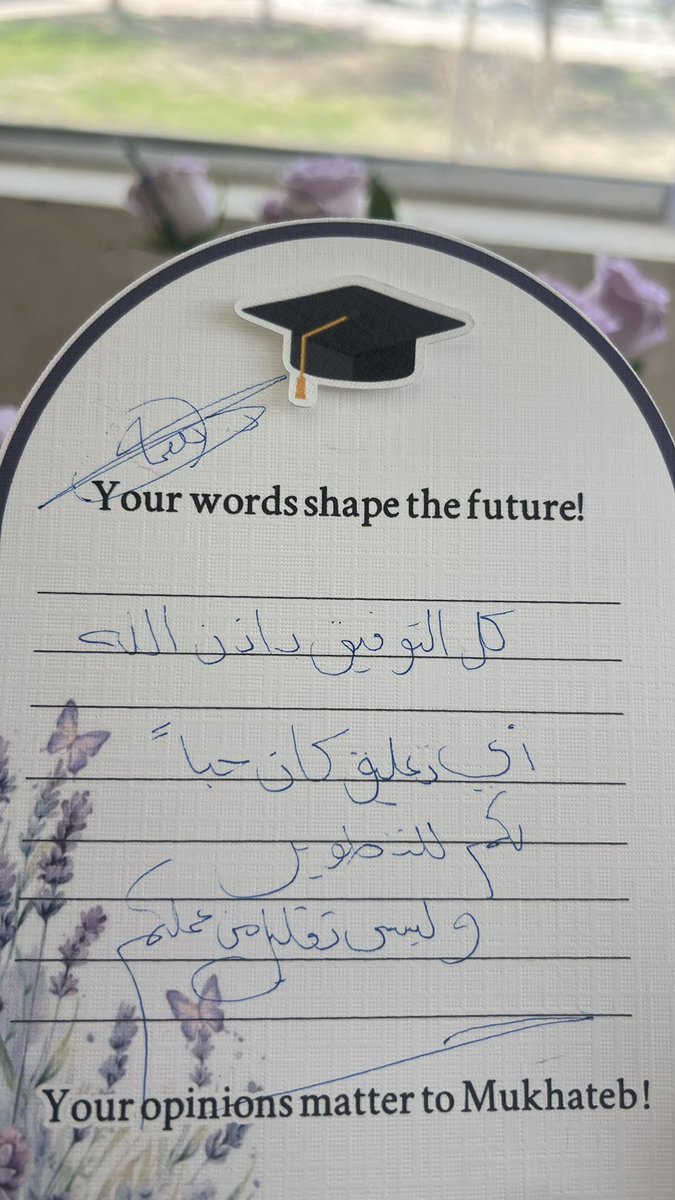 Your words shape the future!
كل التوفيق باذن الله
أي تعليق كان حباً
لكم للتطوير
وليس تقليل من عملكم
Your opinions matter to Mukhateb!